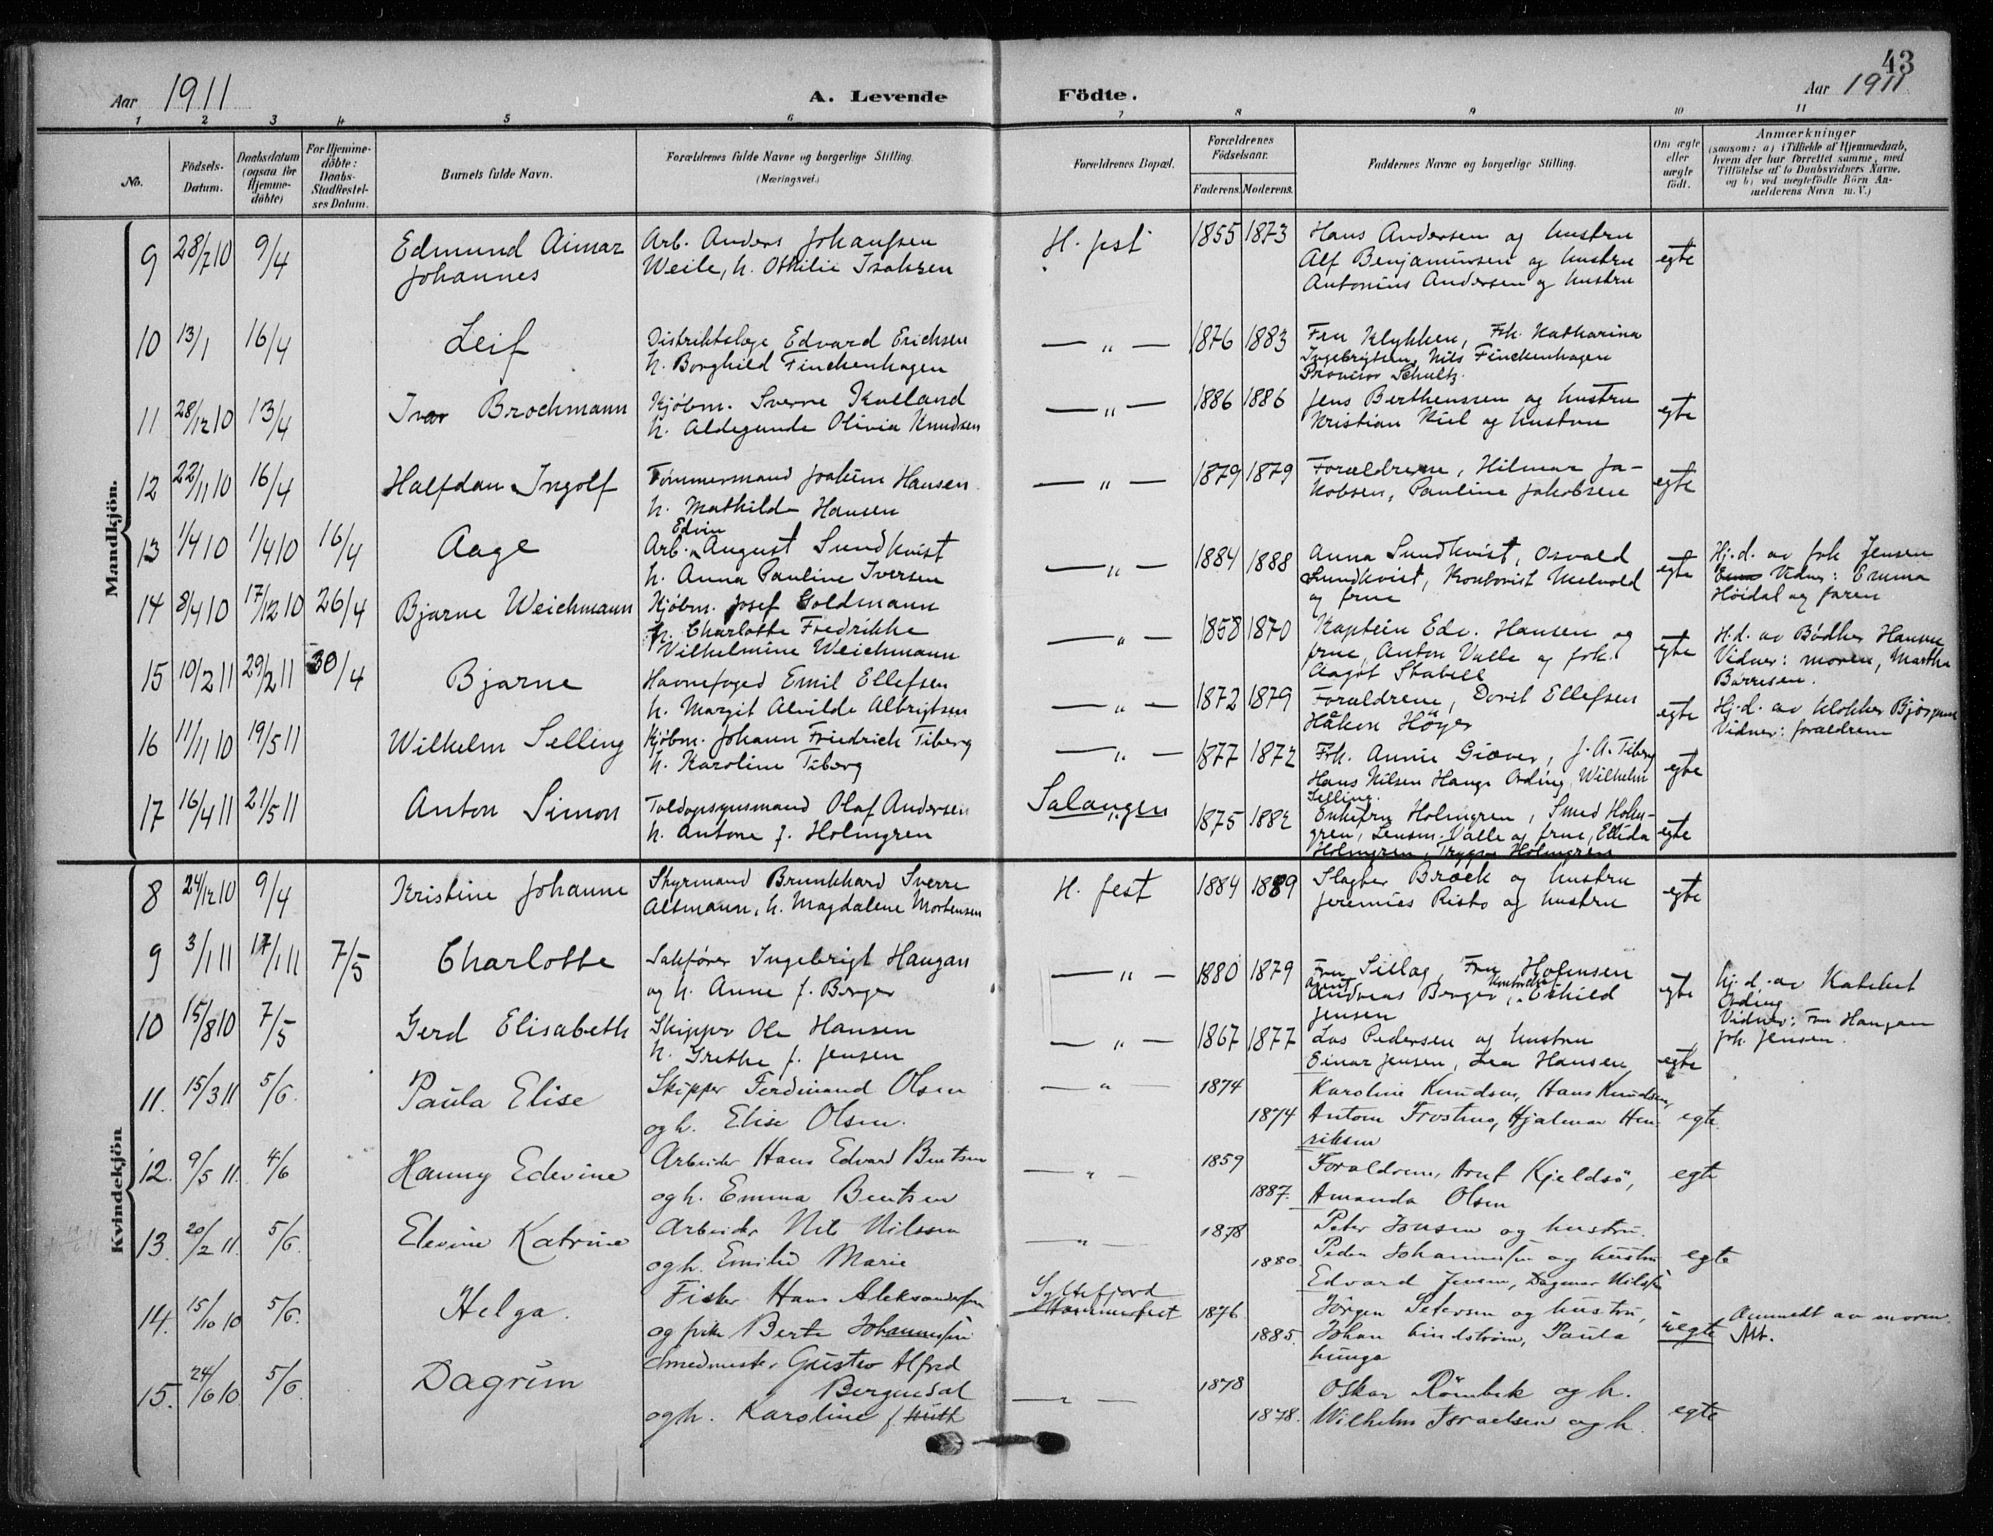 43
Aar 1911 A. Levende Födte. Aar 1911
1 2 3 4 5 6 7 8 9 10 11
No.
Födsels-Datum.
Daabsdatum (ogsaa for Hjemme-döbte)
For Hjemme-döbte: Daabs-Stadfæstel-ses Datum.
Barnets fulde Navn.
Forældrenes fulde Navne og borgerlige Stilling.
(Næringsvei.)
Forældrenes Bopæl.
Forældrenes Födselsaar.
Faderens. Moderens.
Faddernes Navne og borgerlige Stilling.
Om ægte eller uægte födt.
Anmærkninger
(saasom: a) i Tilfælde af Hjemmedaab,
hvem der har forrettet samme, med
Tilföielse af to Daabsvidners Navne.
og b) ved uægtefödte Börn An-
melderens Navn m. V.)
Mandkjön.
9 28/7 10 9/4 Edmund Aimar Johannes
Arb. Anders Johansen
Weile, h. Othilie Isaksen
H. fest 1855 1873
Hans Andersen og hustru
Alf Benjaminsen og hustru
Antonius Andersen og hustru
egte
10 13/1 16/4 Leif
Distriktslæge Edvard Erichsen
h. Borghild Finckenhagen
— " — 1876 1883
Fru Klykken, Frk. Katharina
Ingebrigtsen, Nils Finckenhagen
Provisor Schultz.
11 28/12 10 13/4 Ivar Brochmann
Kjøbm. Sverre Kulland
h. Aldegunde Olivia Knudsen
— " — 1886 1886
Jens Berthenssen og hustru
Kristian Kiil og hustru
egte
12 22/11 10 16/4 Halfdan Ingolf
Tømmermand Joakim Hansen
h. Mathilde Hansen
— " — 1879 1879
Forældrene, Hilmar Ja-
kobsen, Pauline Jakobsen
egte
13 1/4 10 1/4 10 16/4 Aage
Edvin
Arb. August Sundkvist
h. Anna Pauline Iversen
— " — 1884 1888
Anna Sundkvist, Osvald
Sundkvist, Kontorist Melvold
og frue
egte
Hj.d. av frk Jensen
Vidner: Emma
Høidal og faren
14 8/4 10 17/12 10 26/4 Bjarne Weichmann
Kjøbm. Josef Goldmann
h. Charlotte Fredrikke
Wilhelmine Weichmann
— " — 1858 1870
Kaptein Edv. Hansen og
frue, Anton Valle og frk.
Aagot Stabell
egte
H.d. av Bødker Hansen
Vidner: moren, Martha
Børresen.
15 10/2 11 29/2 11 30/4 Bjarne
Havnefoged Emil Ellefsen
h. Margit Alvilde Albrigtsen
— " — 1872 1879
Forældrene, Doril Ellefsen
Håkon Höyer
egte
Hj.d. av klokker
Vidner: forældrene
16 11/11 10 19/5 11 Wilhelm Selling
Kjøbm. Johann Friedrich Tiberg
h. Karoline Tiberg
— " — 1877 1872
Frk. Annie Giæver, J. A. Tiberg
Hans Nilsen Hauge Ording, Wilhelm
Selling.
egte
17 16/4 11 21/5 11 Anton Simon
Toldopsynsmand Olaf Andersen
h. Antone f. Holmgren
Salangen 1875 1882
Enkefru Holmgren, Smed Holm-
gren, Lensm. Valle og frue, Ellida
Holmgren, Trygve Holmgren
egte
Kvindekjön
8 24/12 10 9/4 Kristine Johanne
Styrmand Brunkhard Sverre
Altmann, h. Magdalene Mortensen
H. fest 1884 1889
Slagter Brock og hustru
Jeremias Risto og hustru
egte
9 3/1 11 17/1 11 7/5 Charlotte
Sakfører Ingebrigt Haugan
og h. Anne f. Berger
— " — 1880 1879
Fru Sillag, Fru
Andreas Berger, Eskild
Jensen
egte
hj.d. av Kateket
Ording
Vidner: Fru Haugan
frk. Jensen.
10 15/8 10 7/5 Gerd Elisabeth
Skipper Ole Hansen
h. Grethe f. Jensen
— " — 1867 1877
Las Pedersen og hustru
Einar Jensen, Lea Hansen
egte
11. 15/3 11 5/6. Paula Elise
Skipper Ferdinand Olsen
og h. Elise Olsen.
— " — 1874 1874
Karoline Knudsen, Hans Knudsen,
Antone Frostmo, Hjalmar Hen-
riksen
egte.
12. 9/5 11. 4/6 Hanny Edevine
Arbeider Hans Edvard Bentsen
og h. Emma Bentsen
— " — 1859 1887.
Forældrene, Arnt Kjeldsö,
Amanda Olsen
egte
13. 20/2 11. 5/6. Elevine Katrine
Arbeider Nils Nilssen
og h. Emilie Marie
— " — 1878 1880.
Peter Jonsen og hustru.
Peder Johannessen og hustru
Edvard Jensen, Dagmar Nilssen
egte
14. 15/10 10 5/6. Helga.
Fisker Hans Aleksandersen
og pike Berte Johannessen
Syltefjord
Hammerfest
1876 1885.
Jörgen Petersen og hustru,
Johan Lindström, Paula
uegte
Anmeldt av moren.
15. 24/6 10 5/6. Dagrun
Smedmester Gustav Alfred
Bergendal
og h. Karoline f.
— " — 1878 1878.
Oskar Rönbek og h.
Wilhelm Israelsen og h.
egte